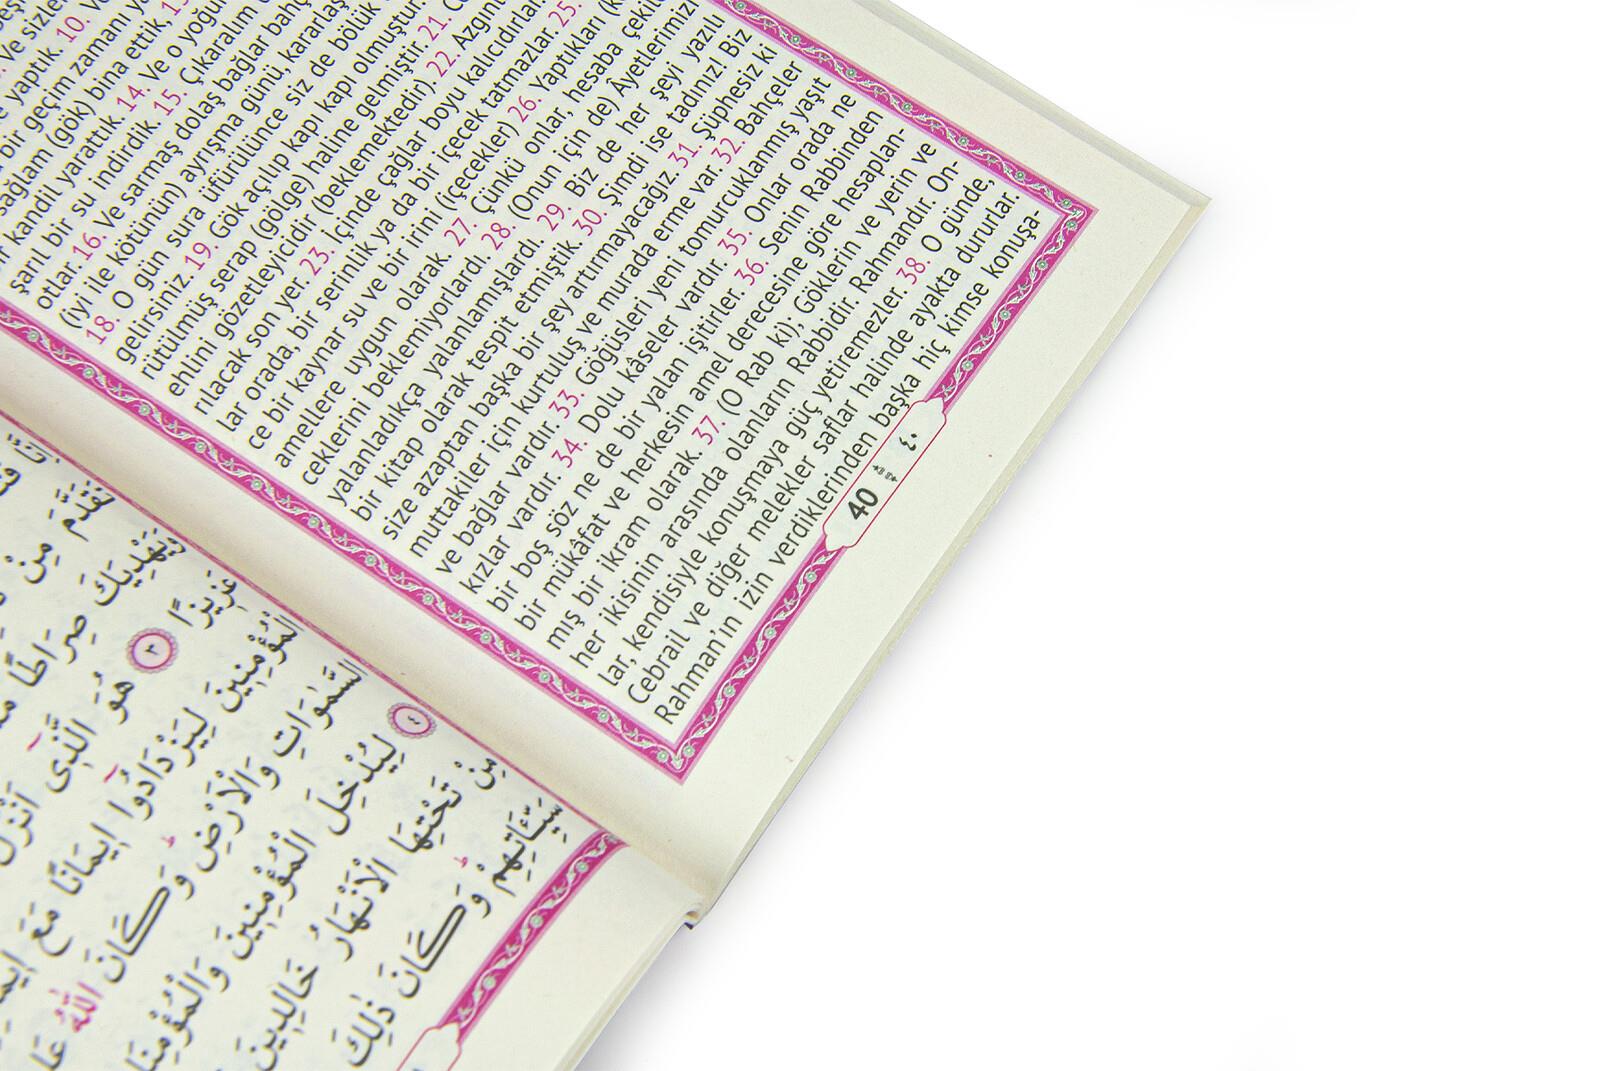 ve sizler
e yaptık. 10. Ve
bir geçim zamanı
sağlam (gök) bina ettik.
kandil yarattık. 14. Ve o yoğun
şarıl bir su indirdik. 15. Çıkaralım
otlar. 16. Ve sarmaş dolaş bağlar bahç
(iyi ile kötünün) ayrışma günü, kararlaş
18. O gün sura üfürülünce siz de bölük
gelirsiniz. 19. Gök açılıp kapı kapı olmuştur.
rütülmüş serap (gölge) haline gelmiştir. 21.
enlini gözetleyicidir (beklemektedir). 22. Azgın
rılacak son yer. 23. İçinde çağlar boyu kalıcıdırlar.
lar orada, bir serinlik ya da bir içecek tatmazlar. 25.
ce bir kaynar su ve bir irini (içecekler) 26. Yaptıkları
amellere uygun olarak. 27. Çünkü onlar, hesaba çekil
ceklerini beklemiyorlardı. 28. (Onun için de) Âyetlerimizi
yalanladıkça yalanlamışlardı. 29. Biz de her şeyi yazılı
bir kitap olarak tespit etmiştik. 30. Şimdi ise tadınız! Biz
size azaptan başka bir şey artırmayacağız. 31. Şüphesiz ki
muttakiler için kurtuluş ve murada erme var. 32. Bahçeler
ve bağlar vardır. 33. Göğüsleri yeni tomurcuklanmış yaşıt
kızlar vardır. 34. Dolu kâseler vardır. 35. Onlar orada ne
bir boş söz ne de bir yalan işitirler. 36. Senin Rabbinden
bir mükâfat ve herkesin amel derecesine göre hesaplan-
mış bir ikram olarak. 37. (O Rab ki); Göklerin ve yerin ve
her ikisinin arasında olanların Rabbidir. Rahmandır. On-
lar, kendisiyle konuşmaya güç yetiremezler. 38. O günde,
Cebrail ve diğer melekler saflar halinde ayakta dururlar.
Rahman'ın izin verdiklerinden başka hiç kimse konuşa-
40 ٤٠
تَقَدَّمَ مِنْ
وَيَهْدِيَكَ صِرَاطًا
عَزِيزًا ٣ هُوَ الَّذِى اَنْزَلَ
الْمُؤْمِنِينَ لِيَزْدَادُوا اِيمَانًا مَعَ
السَّمٰوَاتِ وَالْاَرْضِ وَكَانَ اللّٰهُ
٤ لِيُدْخِلَ الْمُؤْمِنِينَ وَالْمُؤْمِنَا
مِنْ تَحْتِهَا الْاَنْهَارُ خَالِدِينَ
سَيِّـَٔاتِهِمْ وَكَانَ ذٰلِكَ